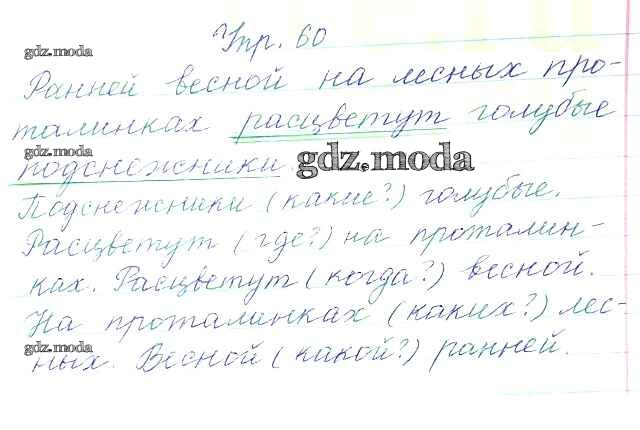 gdz.moda
Упр. 60
Ранней весной на лесных про-
талинках расцветут голубые
gdz.moda
подснежники.
gdz.moda
Подснежники (какие?) голубые.
Расцветут (где?) на проталин-
ках. Расцветут (когда?) весной.
На проталинках (каких?) лес-
gdz.moda
ных. Весной (какой?) ранней.